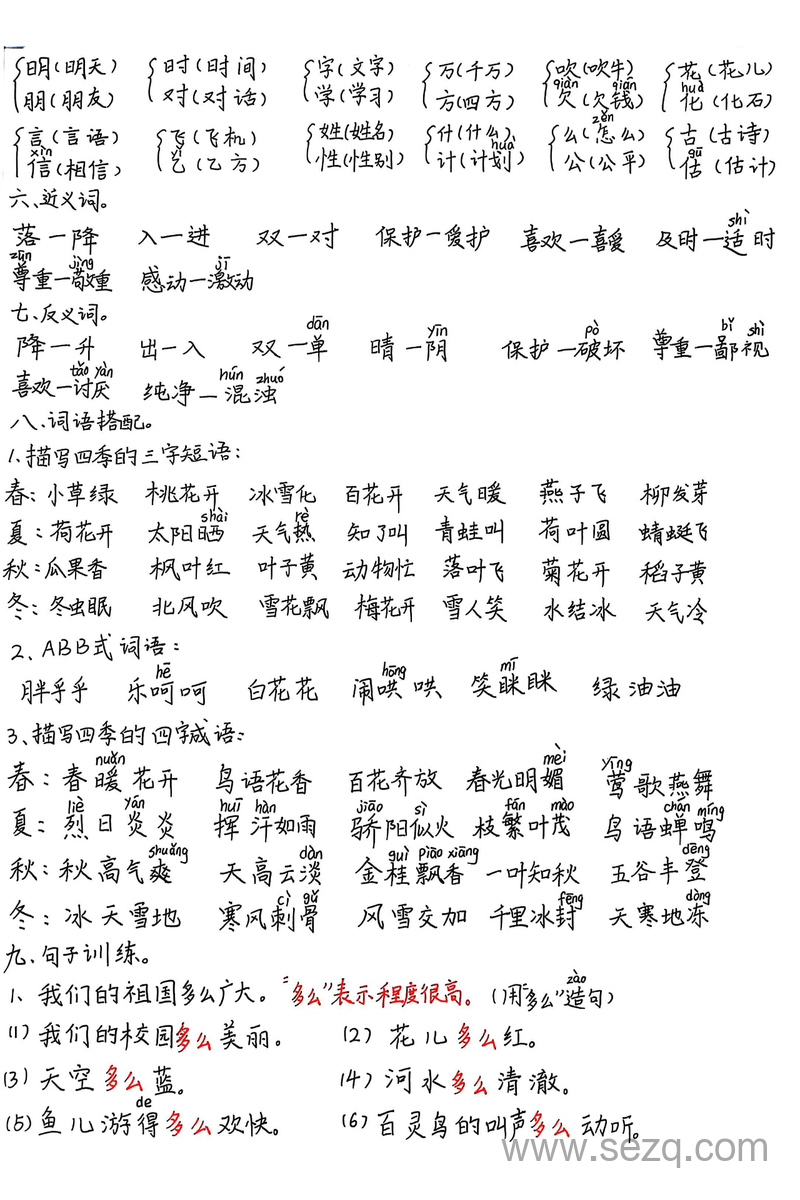 明(明天) 时(时间) 字(文字) 万(千万) 吹(吹牛) 花(花儿)
qiàn qián huà
朋(朋友) 对(对话) 学(学习) 方(四方) 欠(欠钱) 化(化石)
zěn
言(言语) 飞(飞机) 姓(姓名) 什(什么) 么(怎么) 古(古诗)
xìn yǐ huà gū
信(相信) 乙(乙方) 性(性别) 计(计划) 公(公平) 估(估计)
六、近义词。
shì
落—降 入—进 双—对 保护—爱护 喜欢—喜爱 及时—适时
zūn jìng jī
尊重—敬重 感动—激动
七、反义词。
dān yīn pò bǐ shì
降—升 出—入 双—单 晴—阴 保护—破坏 尊重—鄙视
tǎo yàn hún zhuó
喜欢—讨厌 纯净—混浊
八、词语搭配。
1、描写四季的三字短语:
春:小草绿 桃花开 冰雪化 百花开 天气暖 燕子飞 柳发芽
shài rè
夏:荷花开 太阳晒 天气热 知了叫 青蛙叫 荷叶圆 蜻蜓飞
秋:瓜果香 枫叶红 叶子黄 动物忙 落叶飞 菊花开 稻子黄
冬:冬虫眠 北风吹 雪花飘 梅花开 雪人笑 水结冰 天气冷
2、ABB式词语:
hē hōng mī
胖乎乎 乐呵呵 白花花 闹哄哄 笑眯眯 绿油油
3、描写四季的四字成语:
nuǎn mèi yīng
春:春暖花开 鸟语花香 百花齐放 春光明媚 莺歌燕舞
liè yán huī hàn jiāo sì fán mào chán míng
夏:烈日炎炎 挥汗如雨 骄阳似火 枝繁叶茂 鸟语蝉鸣
shuǎng dàn guì piāo xiāng dēng
秋:秋高气爽 天高云淡 金桂飘香 一叶知秋 五谷丰登
cì gǔ fēng dòng
冬:冰天雪地 寒风刺骨 风雪交加 千里冰封 天寒地冻
九、句子训练。
zào
1、我们的祖国多么广大。“多么”表示程度很高。(用“多么”造句)
(1)我们的校园多么美丽。 (2)花儿多么红。
(3)天空多么蓝。 (4)河水多么清澈。
de
(5)鱼儿游得多么欢快。 (6)百灵鸟的叫声多么动听。
www.sezq.com